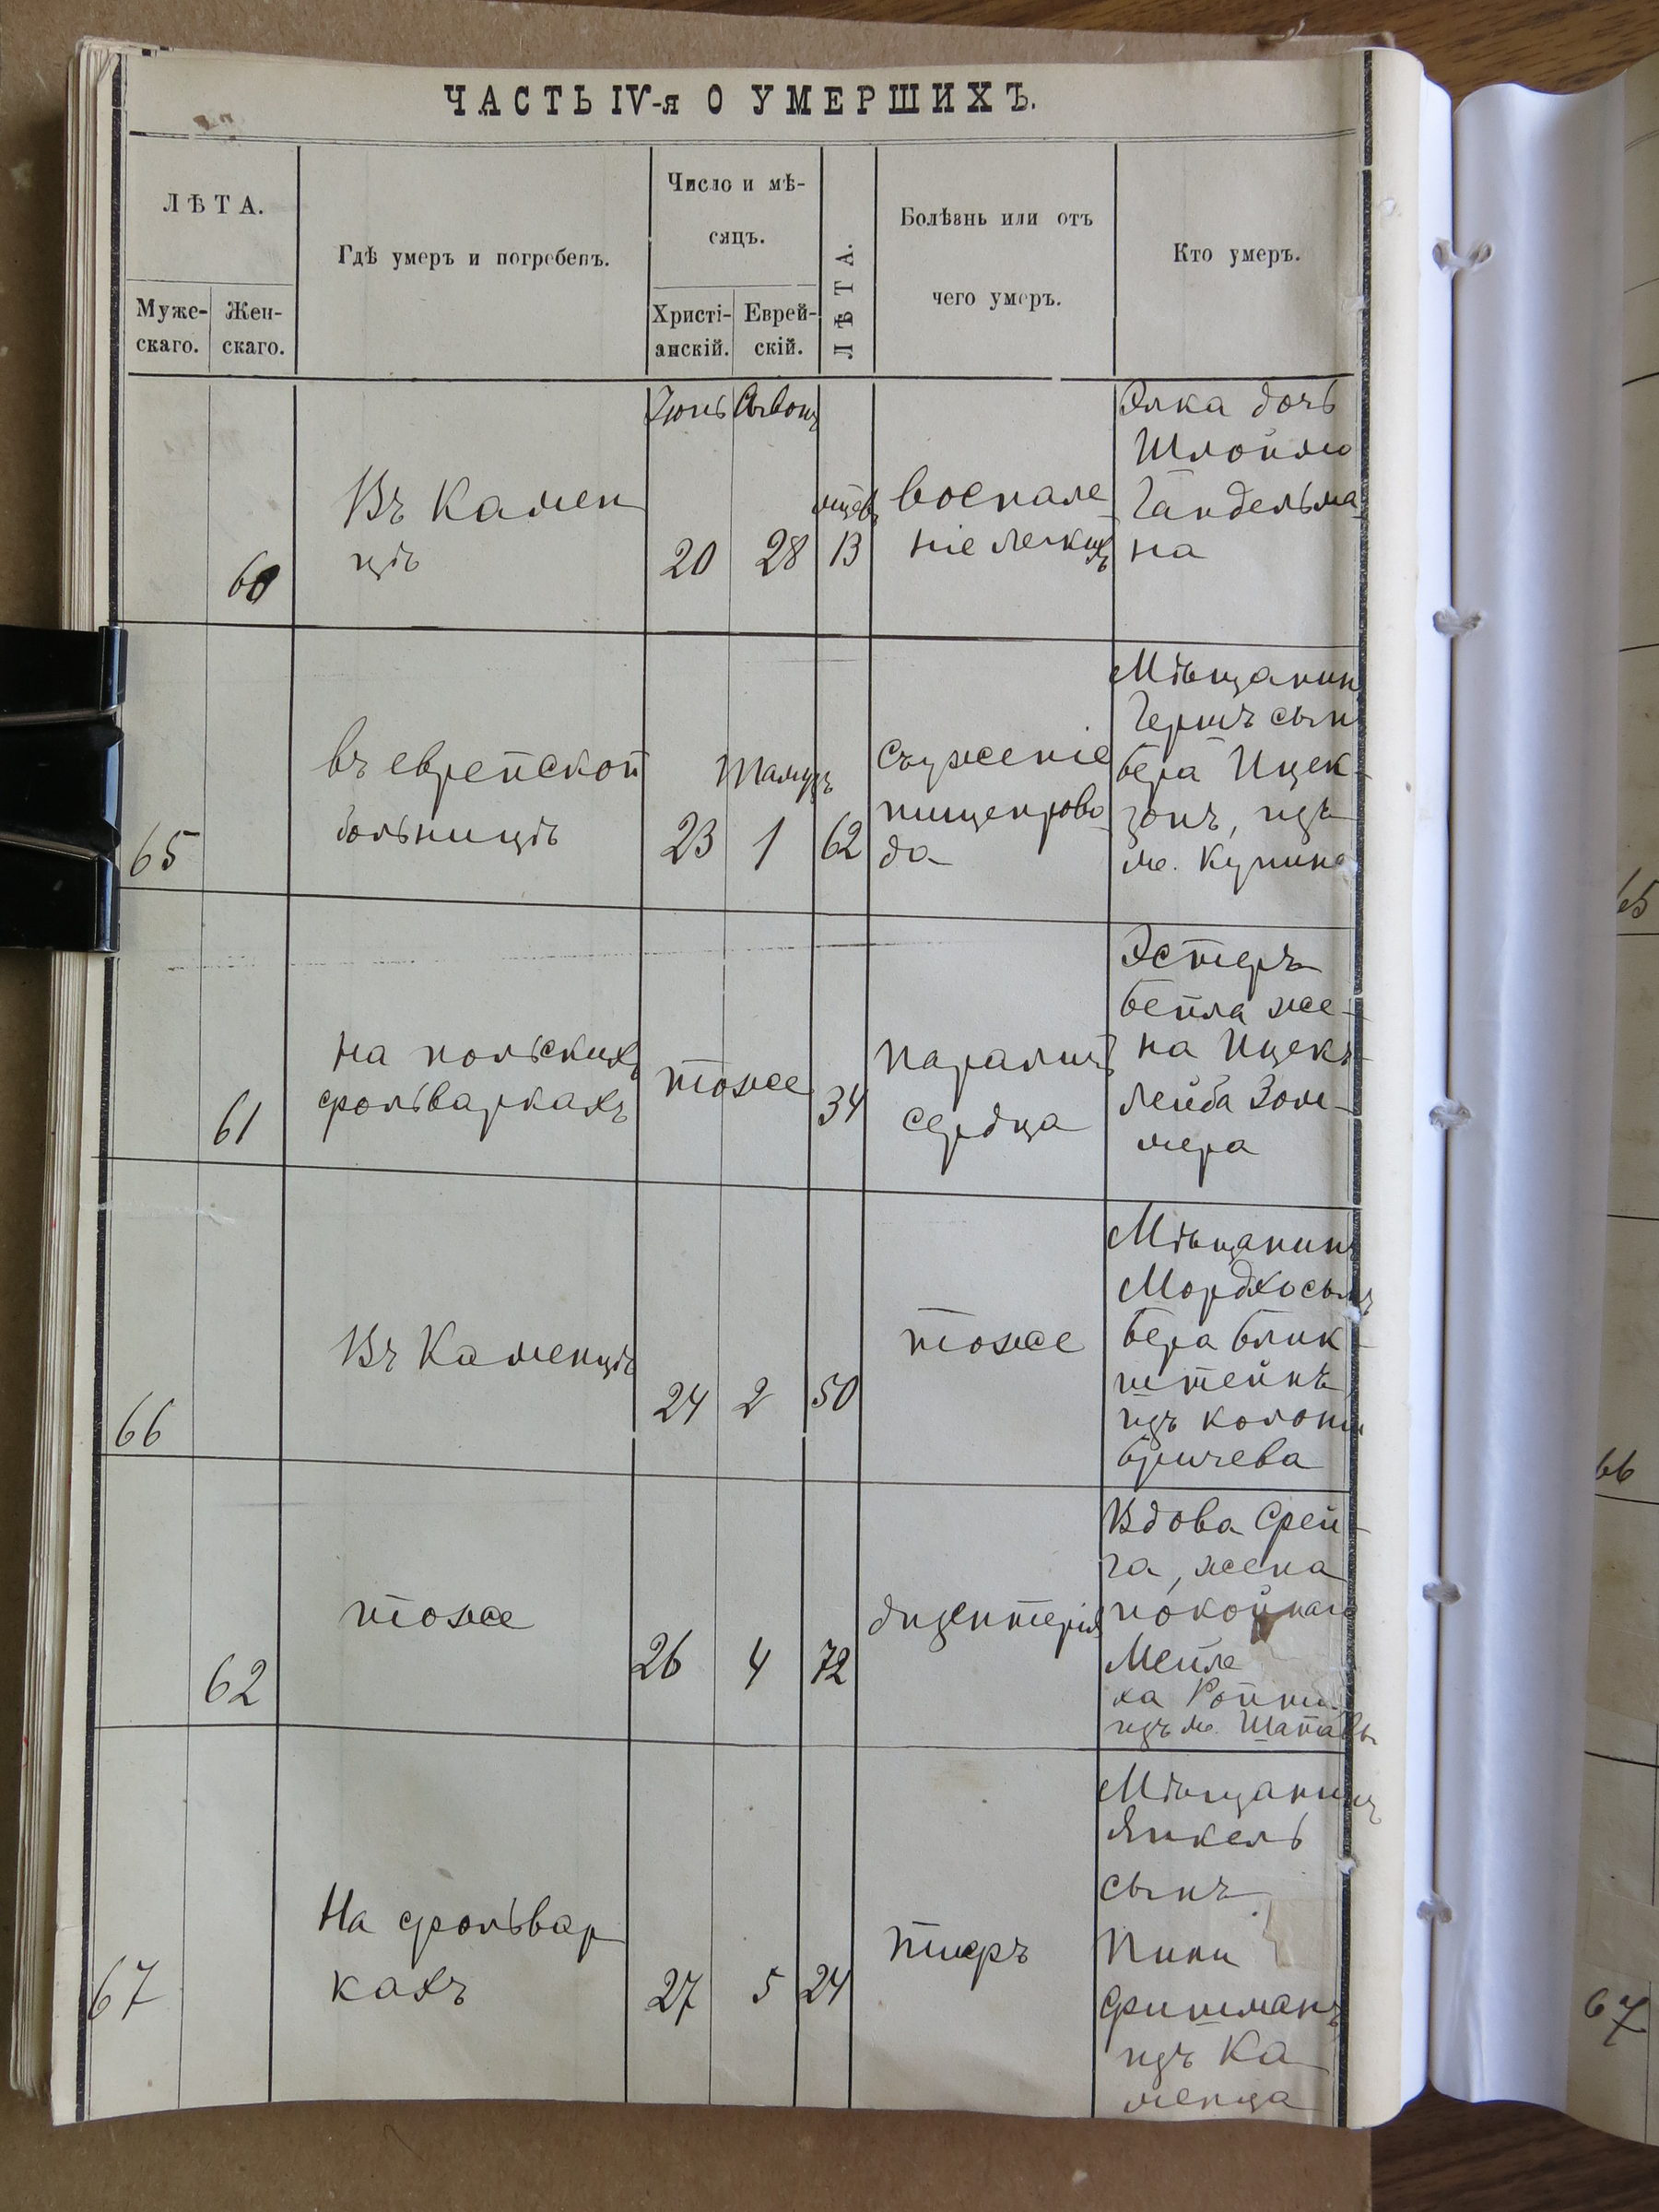 ЧАСТЬ IV-я О УМЕРШИХЪ.
ЛѢТА.
Муже-
скаго.
Жен-
скаго.
Гдѣ умеръ и погребенъ.
Число и мѣ-
сяцъ.
Христі-
анскій.
Еврей-
скій.
ЛѢТА.
Болѣзнь или отъ
чего умеръ.
Кто умеръ.
60
Въ Камен
цѣ
Іюнь
20
28
13
воспале
ніе легкихъ
Элка дочь
Шлоймо
Гандельма
на
65
въ еврейской
больницѣ
23
Тамузъ
1
62
Съуженіе
пищепрово
да
Мѣщанин
Гершъ сын
Бера Ицек-
зонъ, изъ
м. Купина
61
на польскихъ
фольваркахъ
тоже
34
параличъ
сердца
Эстеръ
Бейла же-
на Ицекъ-
Лейба Зом-
мера
66
Въ Каменцѣ
24
2
50
тоже
Мѣщанинъ
Мордко сынъ
Бера Блик
штейнъ
изъ колоніи
Бричева
62
тоже
26
4
72
дизентерія
Вдова Фрей-
га, жена
покойнаго
Мейле
ха
изъ м. Шатавы
67
На фольвар
кахъ
27
5
24
тифъ
Мѣщанинъ
Янкель
сынъ
Пини
Фишманъ
изъ Ка
менца
65
66
67